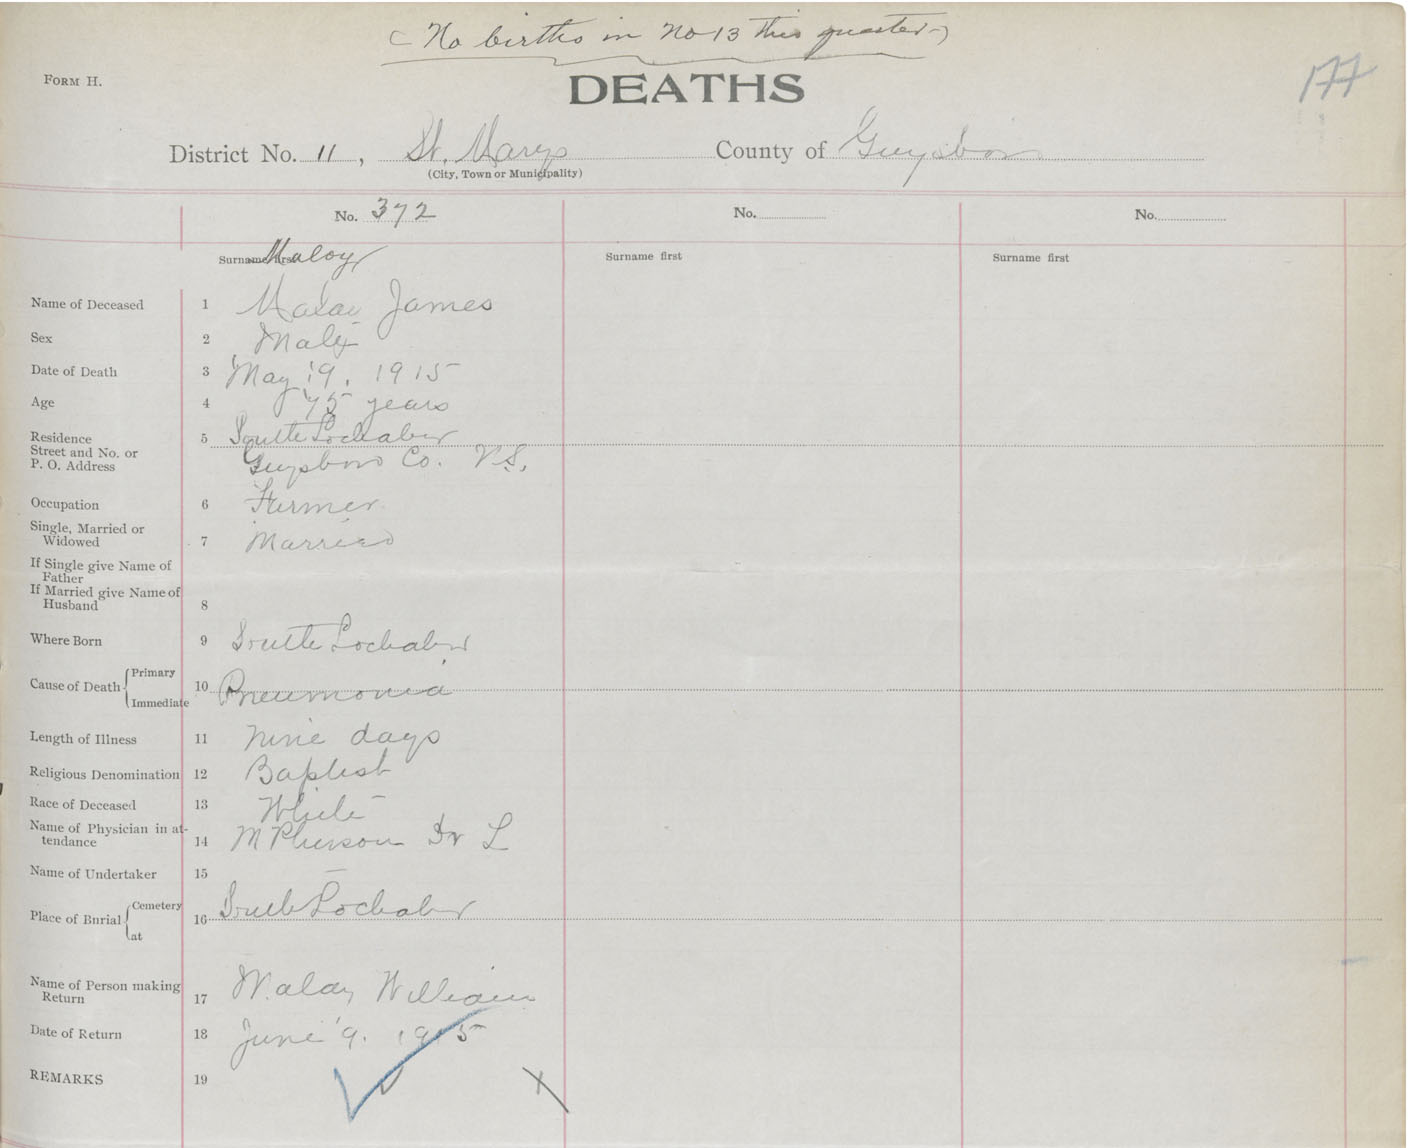 (No births in No 13 this quarter)
FORM H.
DEATHS
177
District No. 11, St. Marys County of Guysboro
(City, Town or Municipality)
No. 372 No. No.
Maloy
Surname first Surname first Surname first
Name of Deceased 1 Malay James
Sex 2 Male
Date of Death 3 May 19, 1915
Age 4 75 years
Residence 5 South Lochaber
Street and No. or
P. O. Address Guysboro Co. N.S.
Occupation 6 Farmer
Single, Married or
Widowed 7 Married
If Single give Name of
Father
If Married give Name of
Husband 8
Where Born 9 South Lochaber
Cause of Death { Primary
10 Pneumonia
Immediate
Length of Illness 11 Nine days
Religious Denomination 12 Baptist
Race of Deceased 13 White
Name of Physician in at-
tendance 14 McPherson Dr L
Name of Undertaker 15 —
Place of Burial { Cemetery
16 South Lochaber
at
Name of Person making
Return 17 Malay William
Date of Return 18 June 9. 1915
REMARKS 19